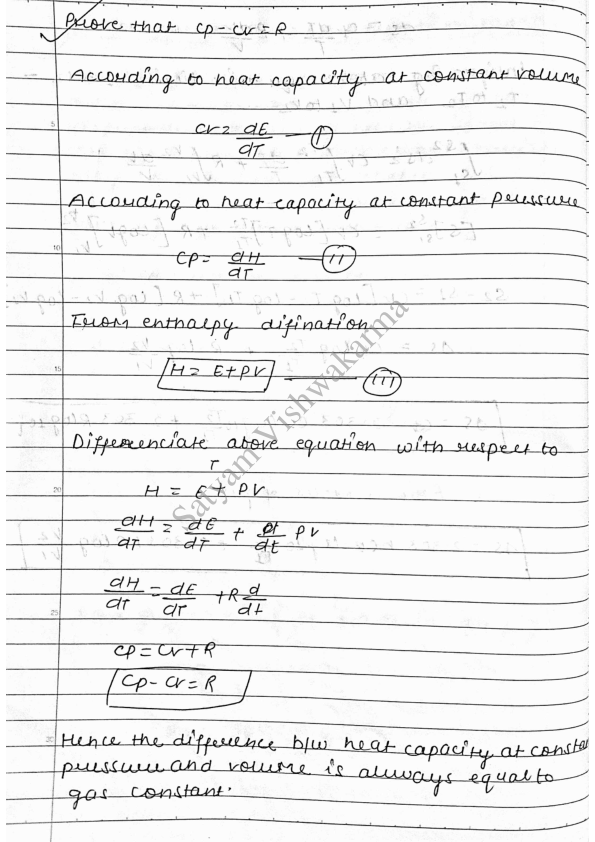 Prove that Cp - Cv = R
According to heat capacity at constant volume
Cv = dE/dT — (I)
According to heat capacity at constant pressure
Cp = dH/dT — (II)
From enthalpy difination
H = E + PV — (III)
Differenciate above equation with respect to
T
H = E + PV
dH/dT = dE/dT + d/dt PV
dH/dT = dE/dT + R d/dt
Cp = Cv + R
Cp - Cv = R
Hence the difference b/w heat capacity at consta
pressure and volume is always equal to
gas constant.
Satyam Vishwakarma
5
10
15
20
25